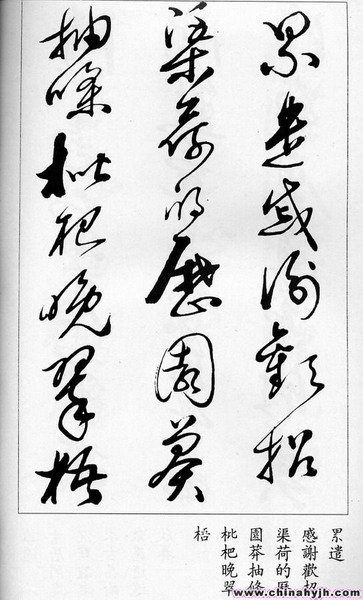 累遣慼謝歡招
渠荷的歷園莽
抽條枇杷晚翠梧
累遣
慼謝歡招
渠荷的歷
園莽抽條
枇杷晚翠
梧
www.chinahyjh.com